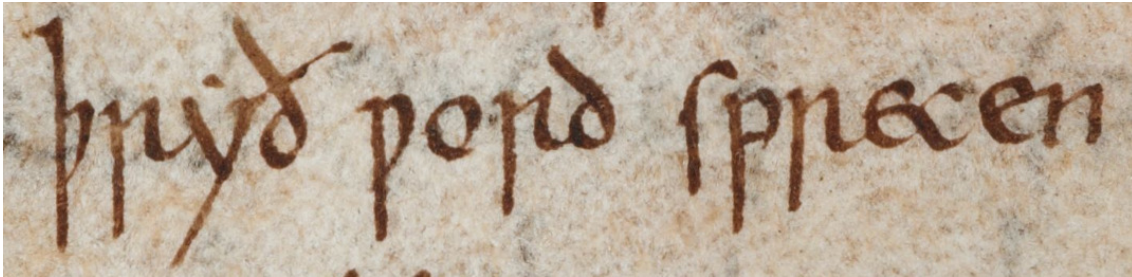 þryð ƿord sprecen